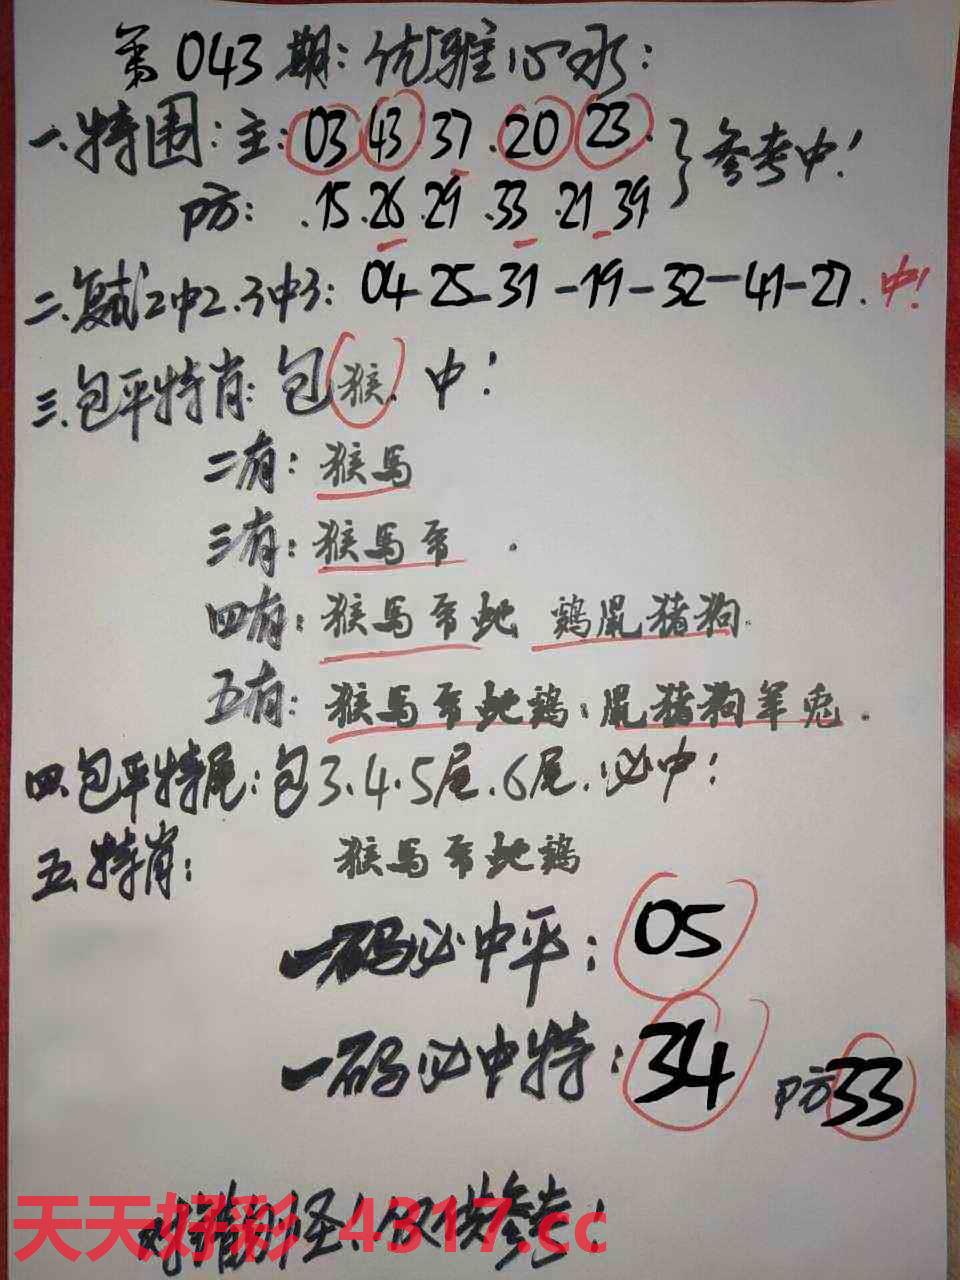 第043期:优雅心水:
一.特围:主:03 43 37.20 23.}参考中!
防:.15.26.29.33.21.39
二.复式2中2.3中3:04-25-31-19-32-41-27.中!
三.包平特肖:包猴.中!
二有:猴马
三有:猴马帝.
四有:猴马帝蛇 鸡鼠猪狗.
五有:猴马帝蛇鸡:鼠猪狗羊兔.
四.包平特尾:包3.4.5尾.6尾.必中!
五.特肖:猴马帝蛇鸡
一码必中平:05
一码必中特:34 防33
对错勿怪!仅供参考!
天天好彩 4317.cc